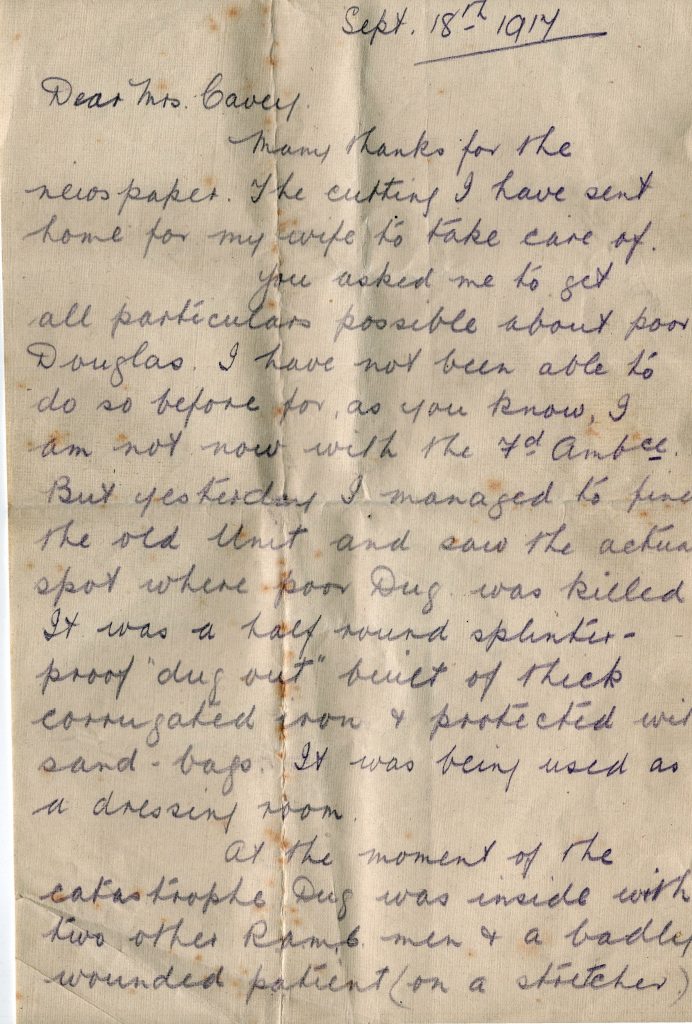 Sept. 18th 1917
Dear Mrs. Cavey.
Many thanks for the
newspaper. The cutting I have sent
home for my wife to take care of.
You asked me to get
all particulars possible about poor
Douglas. I have not been able to
do so before for, as you know, I
am not now with the Fd Ambce.
But yesterday I managed to find
the old Unit and saw the actua
spot where poor Dug. was killed
It was a half round splinter-
proof "dug out" built of thick
corrugated iron & protected wit
sand-bags. It was being used as
a dressing room.
At the moment of the
catastrophe Dug was inside with
two other R.a.m.c. men & a badly
wounded patient (on a stretcher)